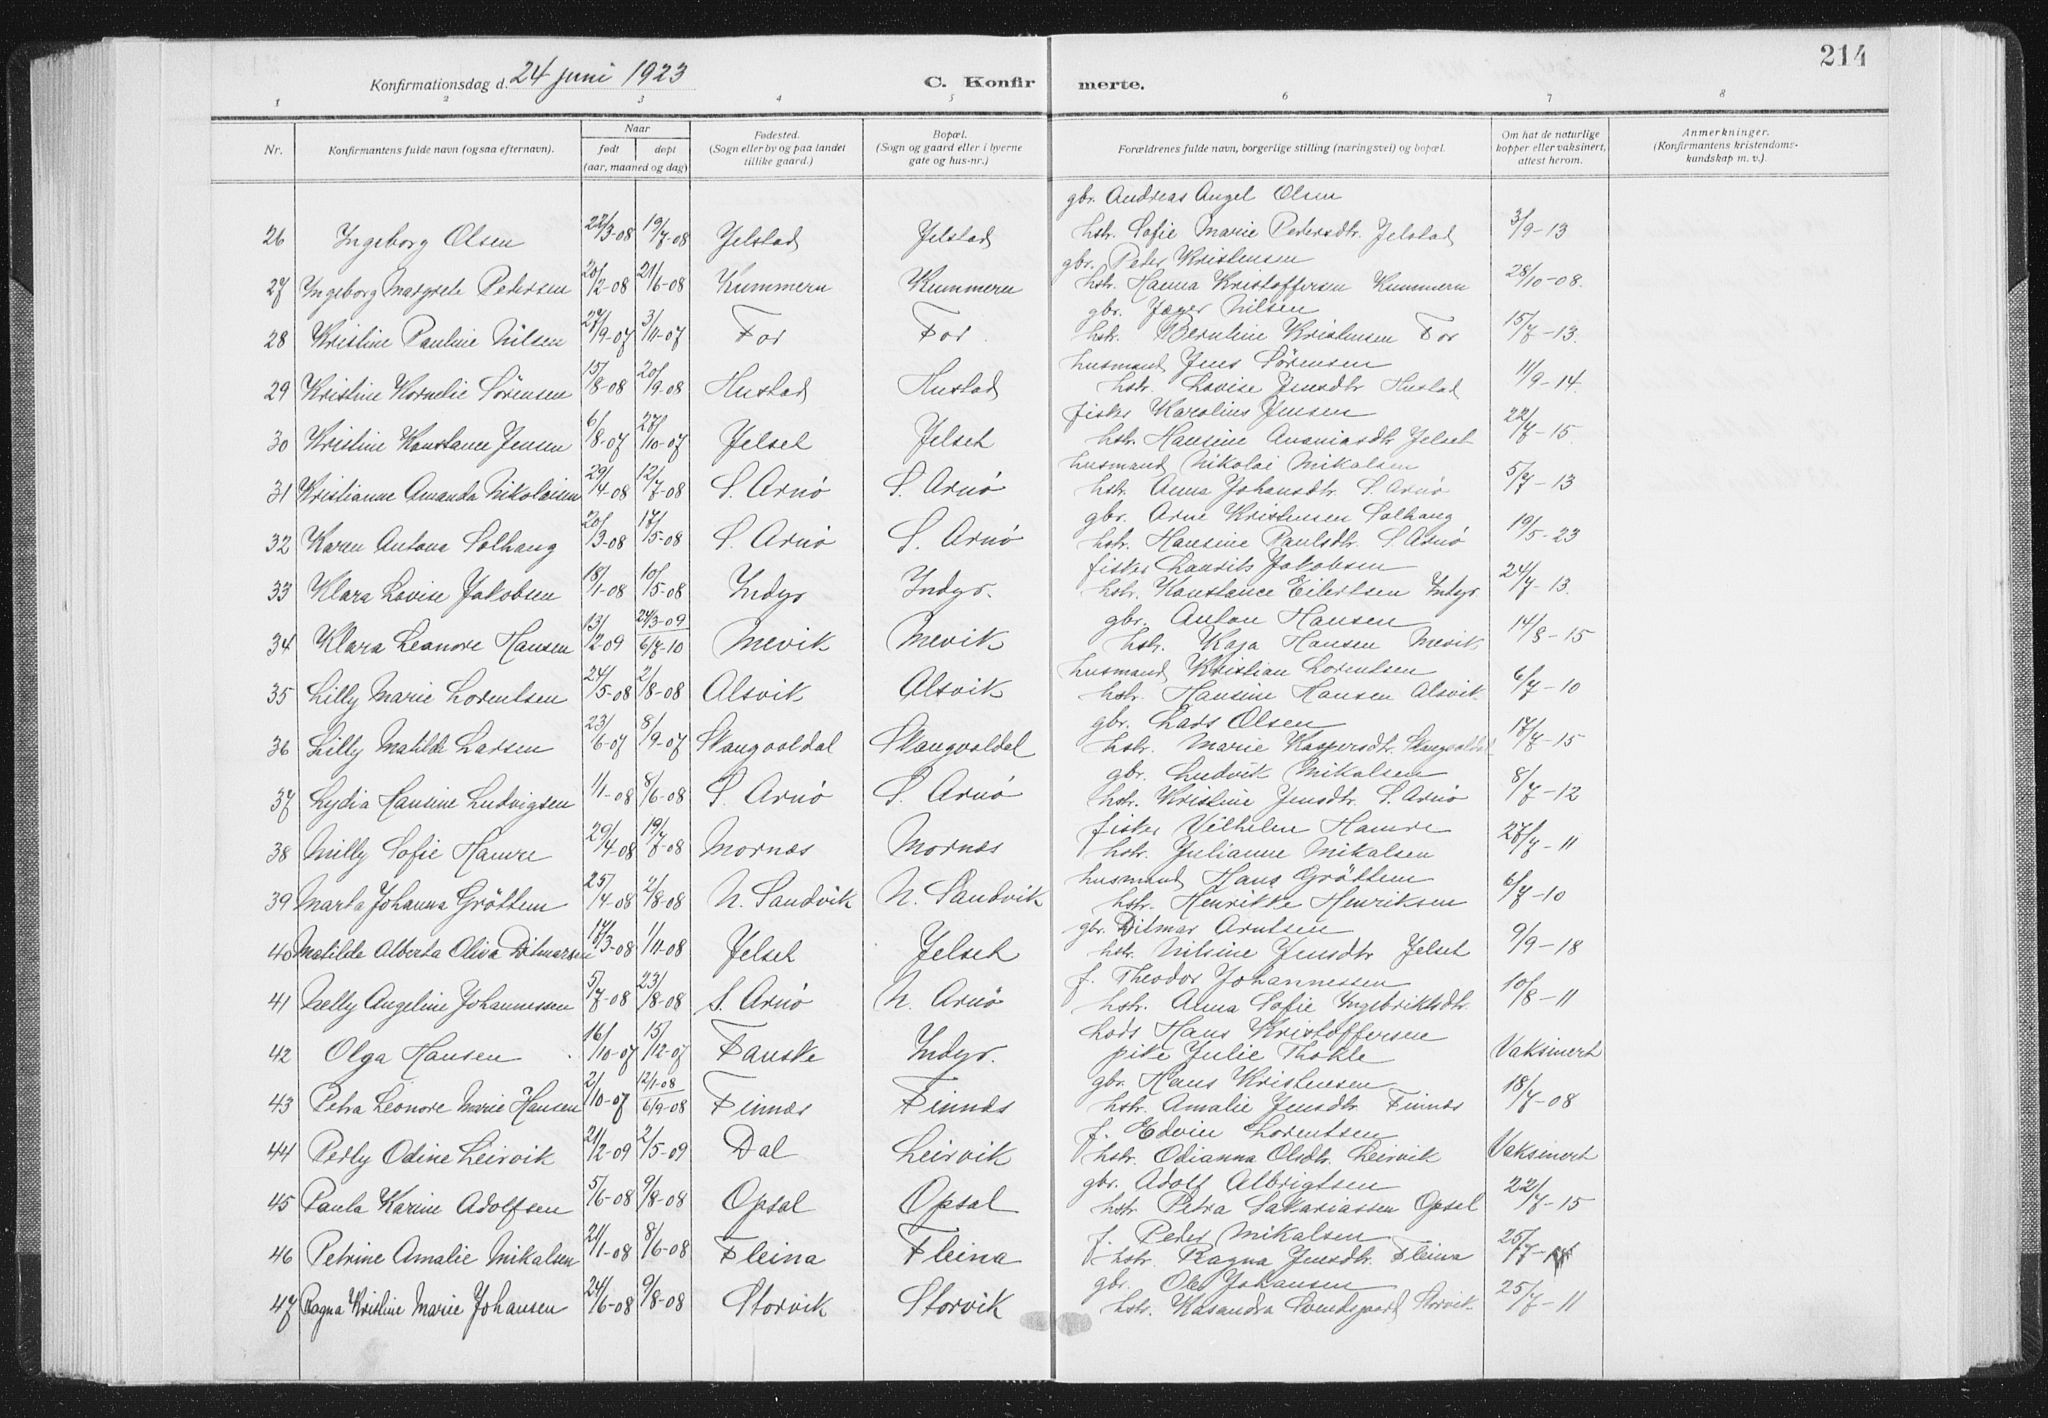 214
Konfirmationsdag d. 24 juni 1923 C. Konfir merte.
1 2 3 4 5 6 7 8
Nr. Konfirmantens fulde navn (ogsaa efternavn). Naar født døpt (aar, maaned og dag) Fødested. (Sogn eller by og paa landet tillike gaard.) Bopæl. (Sogn og gaard eller i byerne gate og hus-nr.) Forældrenes fulde navn, borgerlige stilling (næringsvei) og bopæl. Om hat de naturlige kopper eller vaksinert, attest herom. Anmerkninger. (Konfirmantens kristendoms-kundskap m. v.)
gbr. Andreas Angel Olsen
26 Ingeborg Olsen 22/3-08 19/7-08 Jelstad Jelstad hstr. Sofie Marie Pedersdtr. Jelstad 3/9-13
gbr. Peder Kristensen
27 Ingeborg Margrete Pedersen 20/2-08 21/6-08 Kummern Kummern hstr. Hanna Kristoffersen Kummern 28/10-08.
gbr. Jæger Nilsen
28 Kristine Pauline Nilsen 27/9-07 3/11-07 For For. hstr. Berntine Kristensen For 15/7-13.
husmand Jens Sørensen
29 Kristine Kornelie Sørensen 15/8-08 20/9-08 Hustad Hustad hstr. Lovise Jensdtr. Hustad 11/9-14.
fisker Karolius Jensen
30 Kristine Konstance Jensen 6/8-07 27/10-07 Jelset Jelset hstr. Hansine Ananiasdtr Jelset 22/7-15.
husmand Nikolai Mikalsen
31 Kristianne Amanda Nikolaisen 29/4-08 12/7-08 S. Arnö S. Arnö hstr. Anna Johansdtr. S. Arnö 5/7-13
gbr. Arne Kristensen Solhaug
32 Karen Antona Solhaug 20/3-08 17/5-08 S. Arnö S. Arnö hstr. Hansine Paulsdtr. S. Arnö 19/5-23
fisker Laurits Jakobsen
33 Klara Lovise Jakobsen 18/1-08 10/5-08 Indyr Indyr. hstr. Konstance Eilertsen Indyr 24/7-13.
gbr. Anton Hansen
34 Klara Leonore Hansen 13/2-09 24/3-09 6/7-10 Mevik Mevik hstr. Kaja Hansen Mevik 14/8-15
husmand Kristian Lorentsen
35 Lilly Marie Lorentsen 24/5-08 2/8-08 Alsvik Alsvik hstr. Hansine Hansen Alsvik. 6/7-10
gbr. Lars Olsen
36 Lilly Matilde Larsen 23/6-07 8/9-07 Skaugvoldal Skaugvoldal hstr. Marie Kaspersdtr. Skaugvoldal 17/7-15
gbr. Ludvik Mikalsen
37 Lydia Hansine Ludvigsen 1/1-08 8/6-08 S. Arnö S. Arnö hstr. Kristine Jensdtr. S. Arnö 8/7-12
fisker Vilhelm Hamre
38 Milly Sofie Hamre 29/4-08 19/7-08 Mornæs Mornæs hstr. Julianne Mikalsen 27/7-11
husmand Hans Gröttem
39 Marta Johanna Gröttem 25/4-08 2/8-08 N. Sandvik N. Sandvik hstr. Henrikke Henriksen 6/7-10
gbr. Ditmar Arntsen
40 Matilde Alberta Oliva Ditmarsen 17/3-08 1/11-08 Jelset Jelset hstr. Nilsine Jensdtr Jelset 9/9-18
f. Theodor Johannessen
41 Nelly Angeline Johannessen 5/7-08 23/8-08 S. Arnö N. Arnö hstr. Anna Sofie Ingebriktsdtr. 10/8-11
Lods Hans Kristoffersen
42 Olga Hansen 16/10-07 15/12-07 Fauske Indyr. pike Julie Thokle Vaksinert
gbr. Hans Kristensen
43 Petra Leonore Marie Hansen 2/10-07 12/1-08 6/9-08 Finnæs Finnæs hstr. Amalie Jensdtr. Finnæs 18/7-08
f. Edvin Lorentsen
44 Perly Odine Leirvik 21/2-09 2/5-09 Dal Leirvik hstr. Odianna Olsdtr. Leirvik Vaksinert
gbr. Adolf Albrigtsen
45 Paula Karine Adolfsen 5/6-08 9/8-08 Opsal Opsal hstr Petra Sakariassen Opsal 22/7-15
f. Peder Mikalsen
46 Petrine Amalie Mikalsen 21/1-08 8/6-08 Fleina Fleina hstr. Ragna Jensdtr. Fleina 25/7-
gbr. Ole Johansen
47 Ragna Kristine Marie Johansen 24/6-08 9/8-08 Storvik Storvik hstr. Kasandra Svendsgaard Storvik. 25/7-11